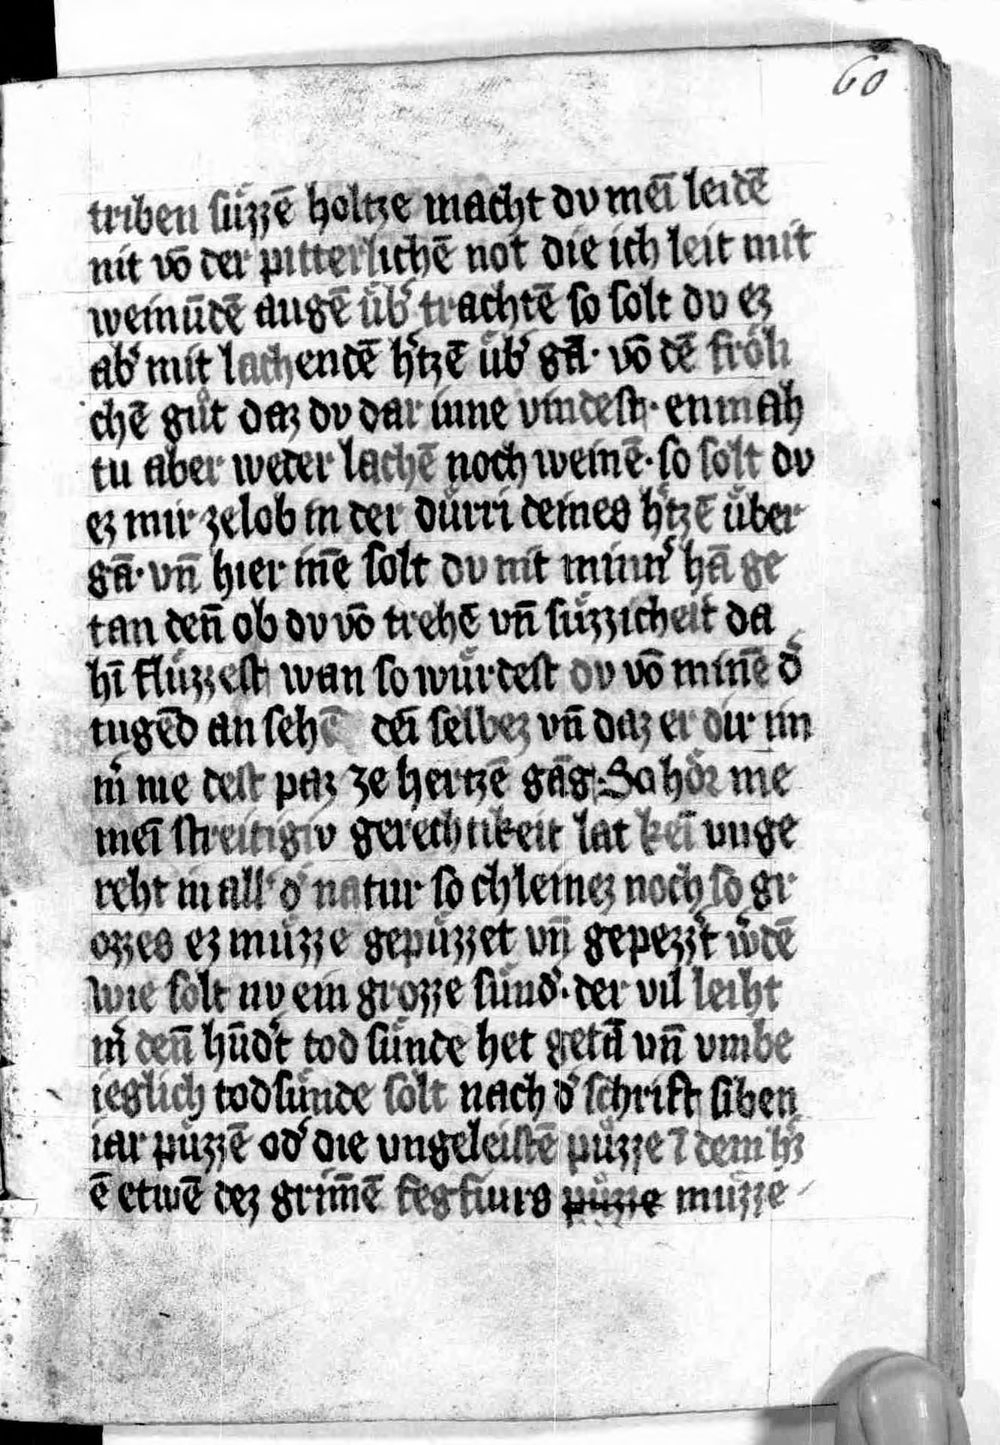 60
triben süzzē holtze macht du mei͞ leidē
nit vō der pitterlichē not die ich leit mit
weinu͞dē augē üb͛ trachtē so solt du ez
ab͛ mit lachendē h͛tzē üb͛ gā· vō dē fröli
chē gůt daz du dar inne vindest· enmah
tu aber weder lachē noch weinē· so solt du
ez mir ze lob in der dürri deines h͛tzē über
gā· vn̄ hier in̄e solt du nit minn͛ hā ge
tan den̄ ob du vō trehē vn̄ süzzicheit da
hi͞ flüzzest wan so würdest du vō min̄e d͛
tugēd an sehē dei͞ selbez vn̄ daz er dir im
m͛ me dest paz ze hertzē gāg· Sa hör me
mei͞ streitigiu gerechtikeit lat kei͞ unge
reht in all͛ d͛ natur so chleinez noch so gr
ozzes ez müzze gepüzzet vn̄ gepezz͛t w͛dē
Wie solt nu ein grozze sünd͛· der vil leiht
m͛ den̄ hūd͛t tod sünde het getā vn̄ vmbe
ieglich todsünde solt nach d͛ schrift siben
iar püzzē od͛ die ungeleistē püzze i͞ dem h͛z
ē etwē dez grim̄ē fegfiurs püzze müzze